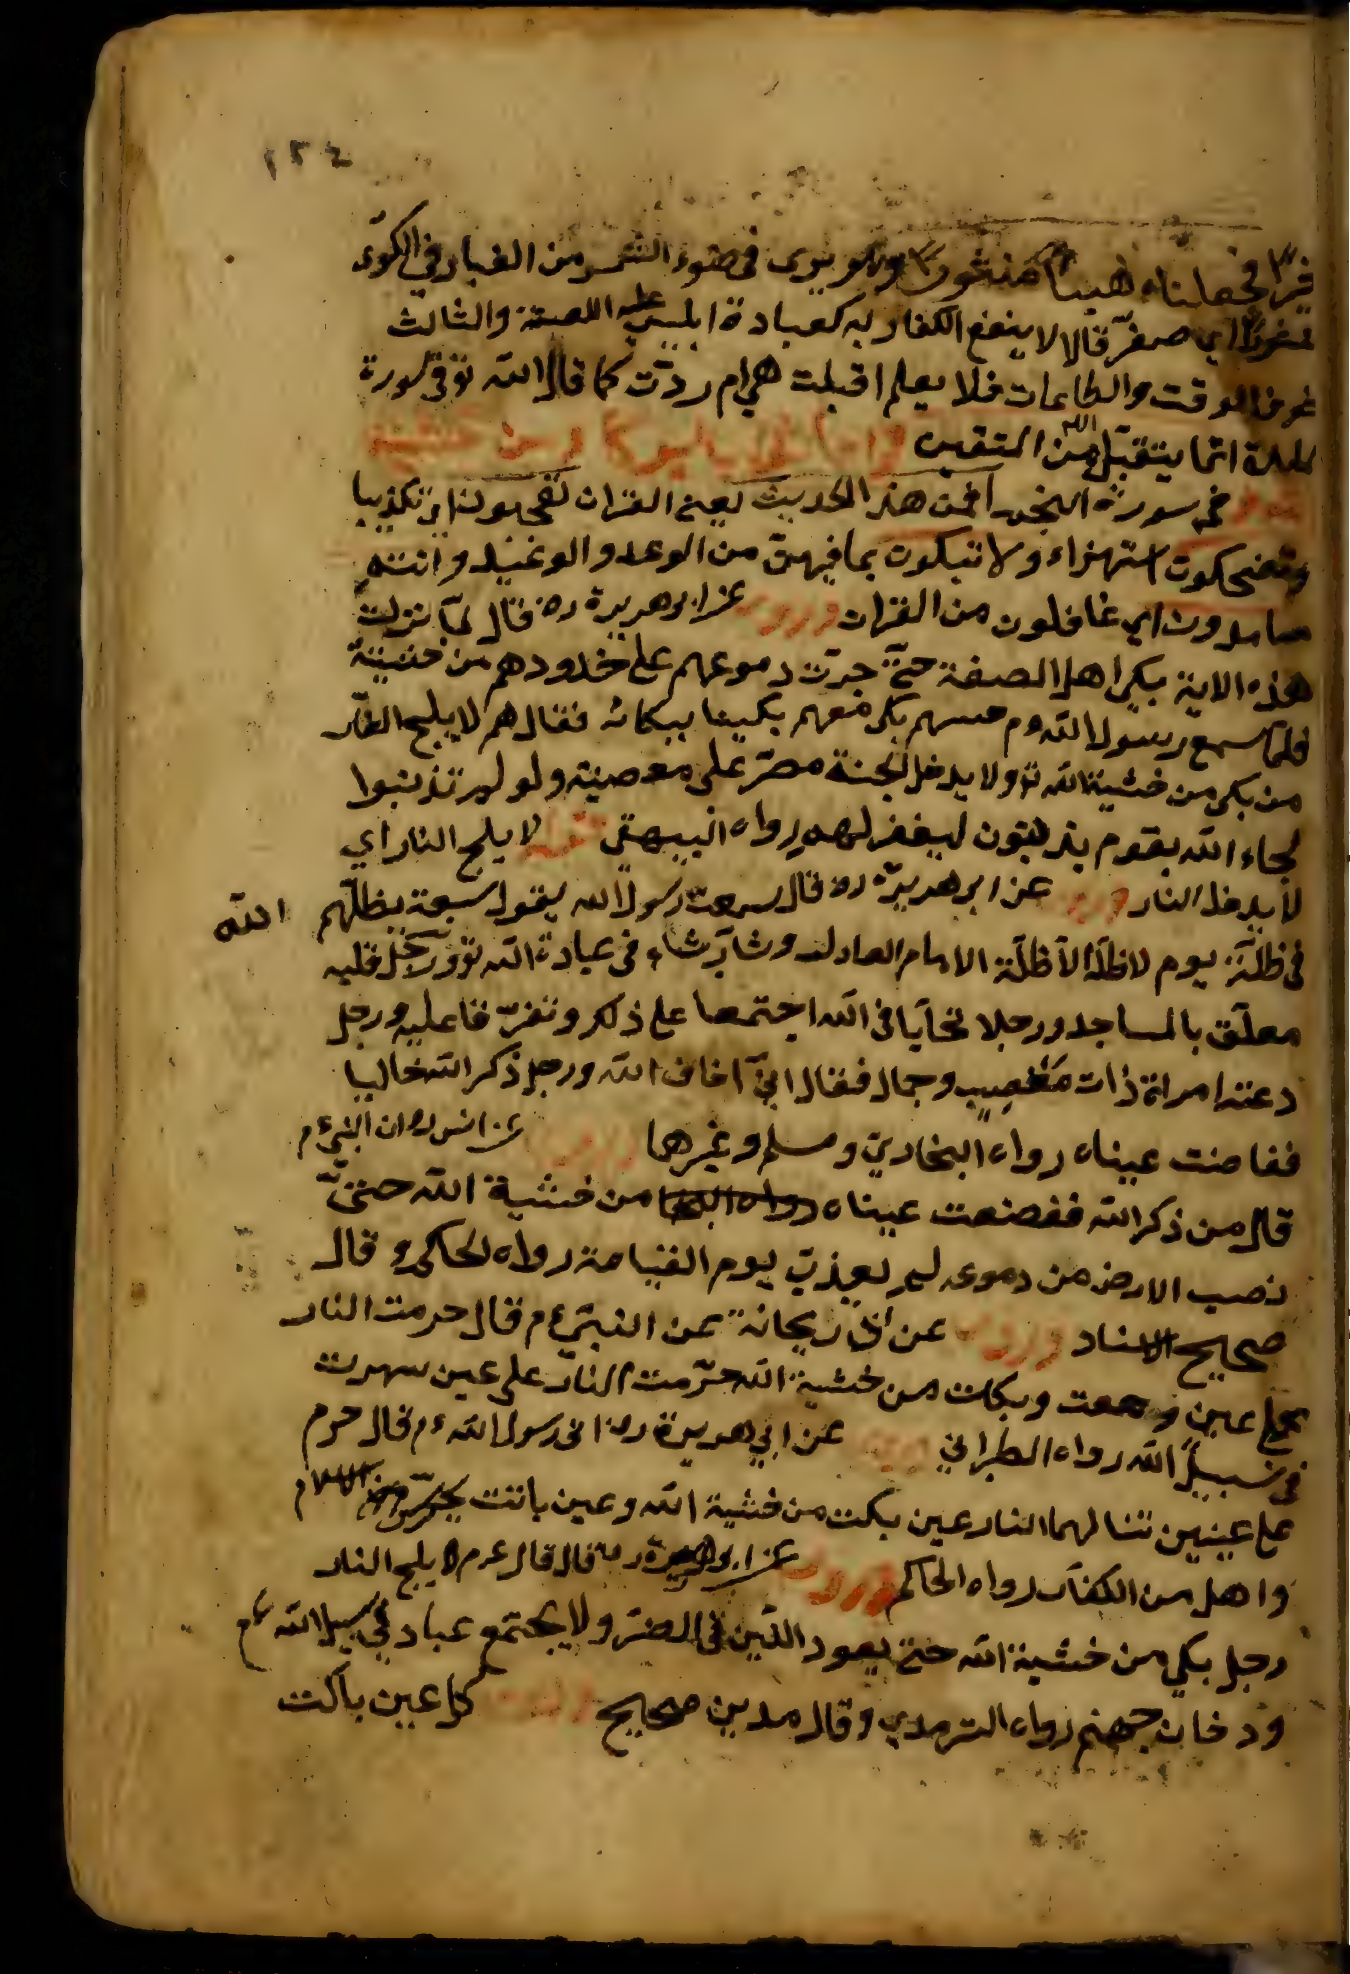 ١٢٤
خيرا فجعلناه هباء منثورا وهو يرى فى ضوء الشمس من الغبار في الكوى
اي صفرقالا لا ينفع الكفار به كعبادة ابليس عليه اللعنة والثالث
الوقت والطاعات فلا يعلم اقبلت هي ام ردت كما قال الله تو فى سورة
المائدة انما يتقبل الله من المتقين من خشية
فى سورة النجم افمن هذا الحديث يعنى القران تعجبون اي تكذيبا
وتضحكون استهزاء ولا تبكون بما فيهن من الوعد والوعيد وانتم
سامدون اي غافلون من القران وروى عن ابو هريرة ره قال لما نزلت
هذه الاية بكى اهل الصفة حتى جرت دموعهم على خدودهم من خشية
فلما سمع رسول الله ءم حسهم بكى معهم بكينا ببكائه فقال هم لا يلج النار
من بكى من خشية الله تو ولا يدخل الجنة مصر على معصيته ولو لم تذنبوا
لجاء الله بقوم يذنبون ليغفر لهم رواه البيهقي قوله لا يلج النار اي
لا يدخل النار وروى عن ابو هريرة ره قال سمعت رسول الله يقول سبعة يظلهم الله
فى ظلة يوم لا ظلة الا ظلة الامام العادل وشاب نشاء فى عبادة الله تو ورجل قلبه
معلق بالمساجد ورجلا تحابا فى الله اجتمعا على ذلك وتفرقا عليه ورجل
دعته امراة ذات منصب وجمال فقال انى اخاف الله ورجل ذكر الله خاليا
ففاضت عيناه رواه البخاري ومسلم وغيرها وروى عن انس ره ان النبي ءم
قال من ذكر الله ففضعت عيناه من خشية الله حتى
نصب الارض من دموعه لم يعذب يوم القيامة رواه الحاكم و قال
صحيح الاسناد وروى عن ابى ريحانة عن النبى ءم قال حرمت النار
على عين دمعت وبكت من خشية الله حرمت النار على عين سهرت
فى سبيل الله رواه الطبراني وروى عن ابي هريرة ره ان رسول الله ءم قال حرم
على عينين تنالهما النار عين بكت من خشية الله وعين باتت تحرس الاسلام
واهله من الكفار رواه الحاكم وروى عن ابو هريرة ره قال قال عرم لا يلج النار
رجل بكى من خشية الله حتى يعود اللبن فى الضرع ولا يجتمع عباد فى سبيل الله
ودخان جهنم رواه الترمدي وقال حديث صحيح كل عين باكت